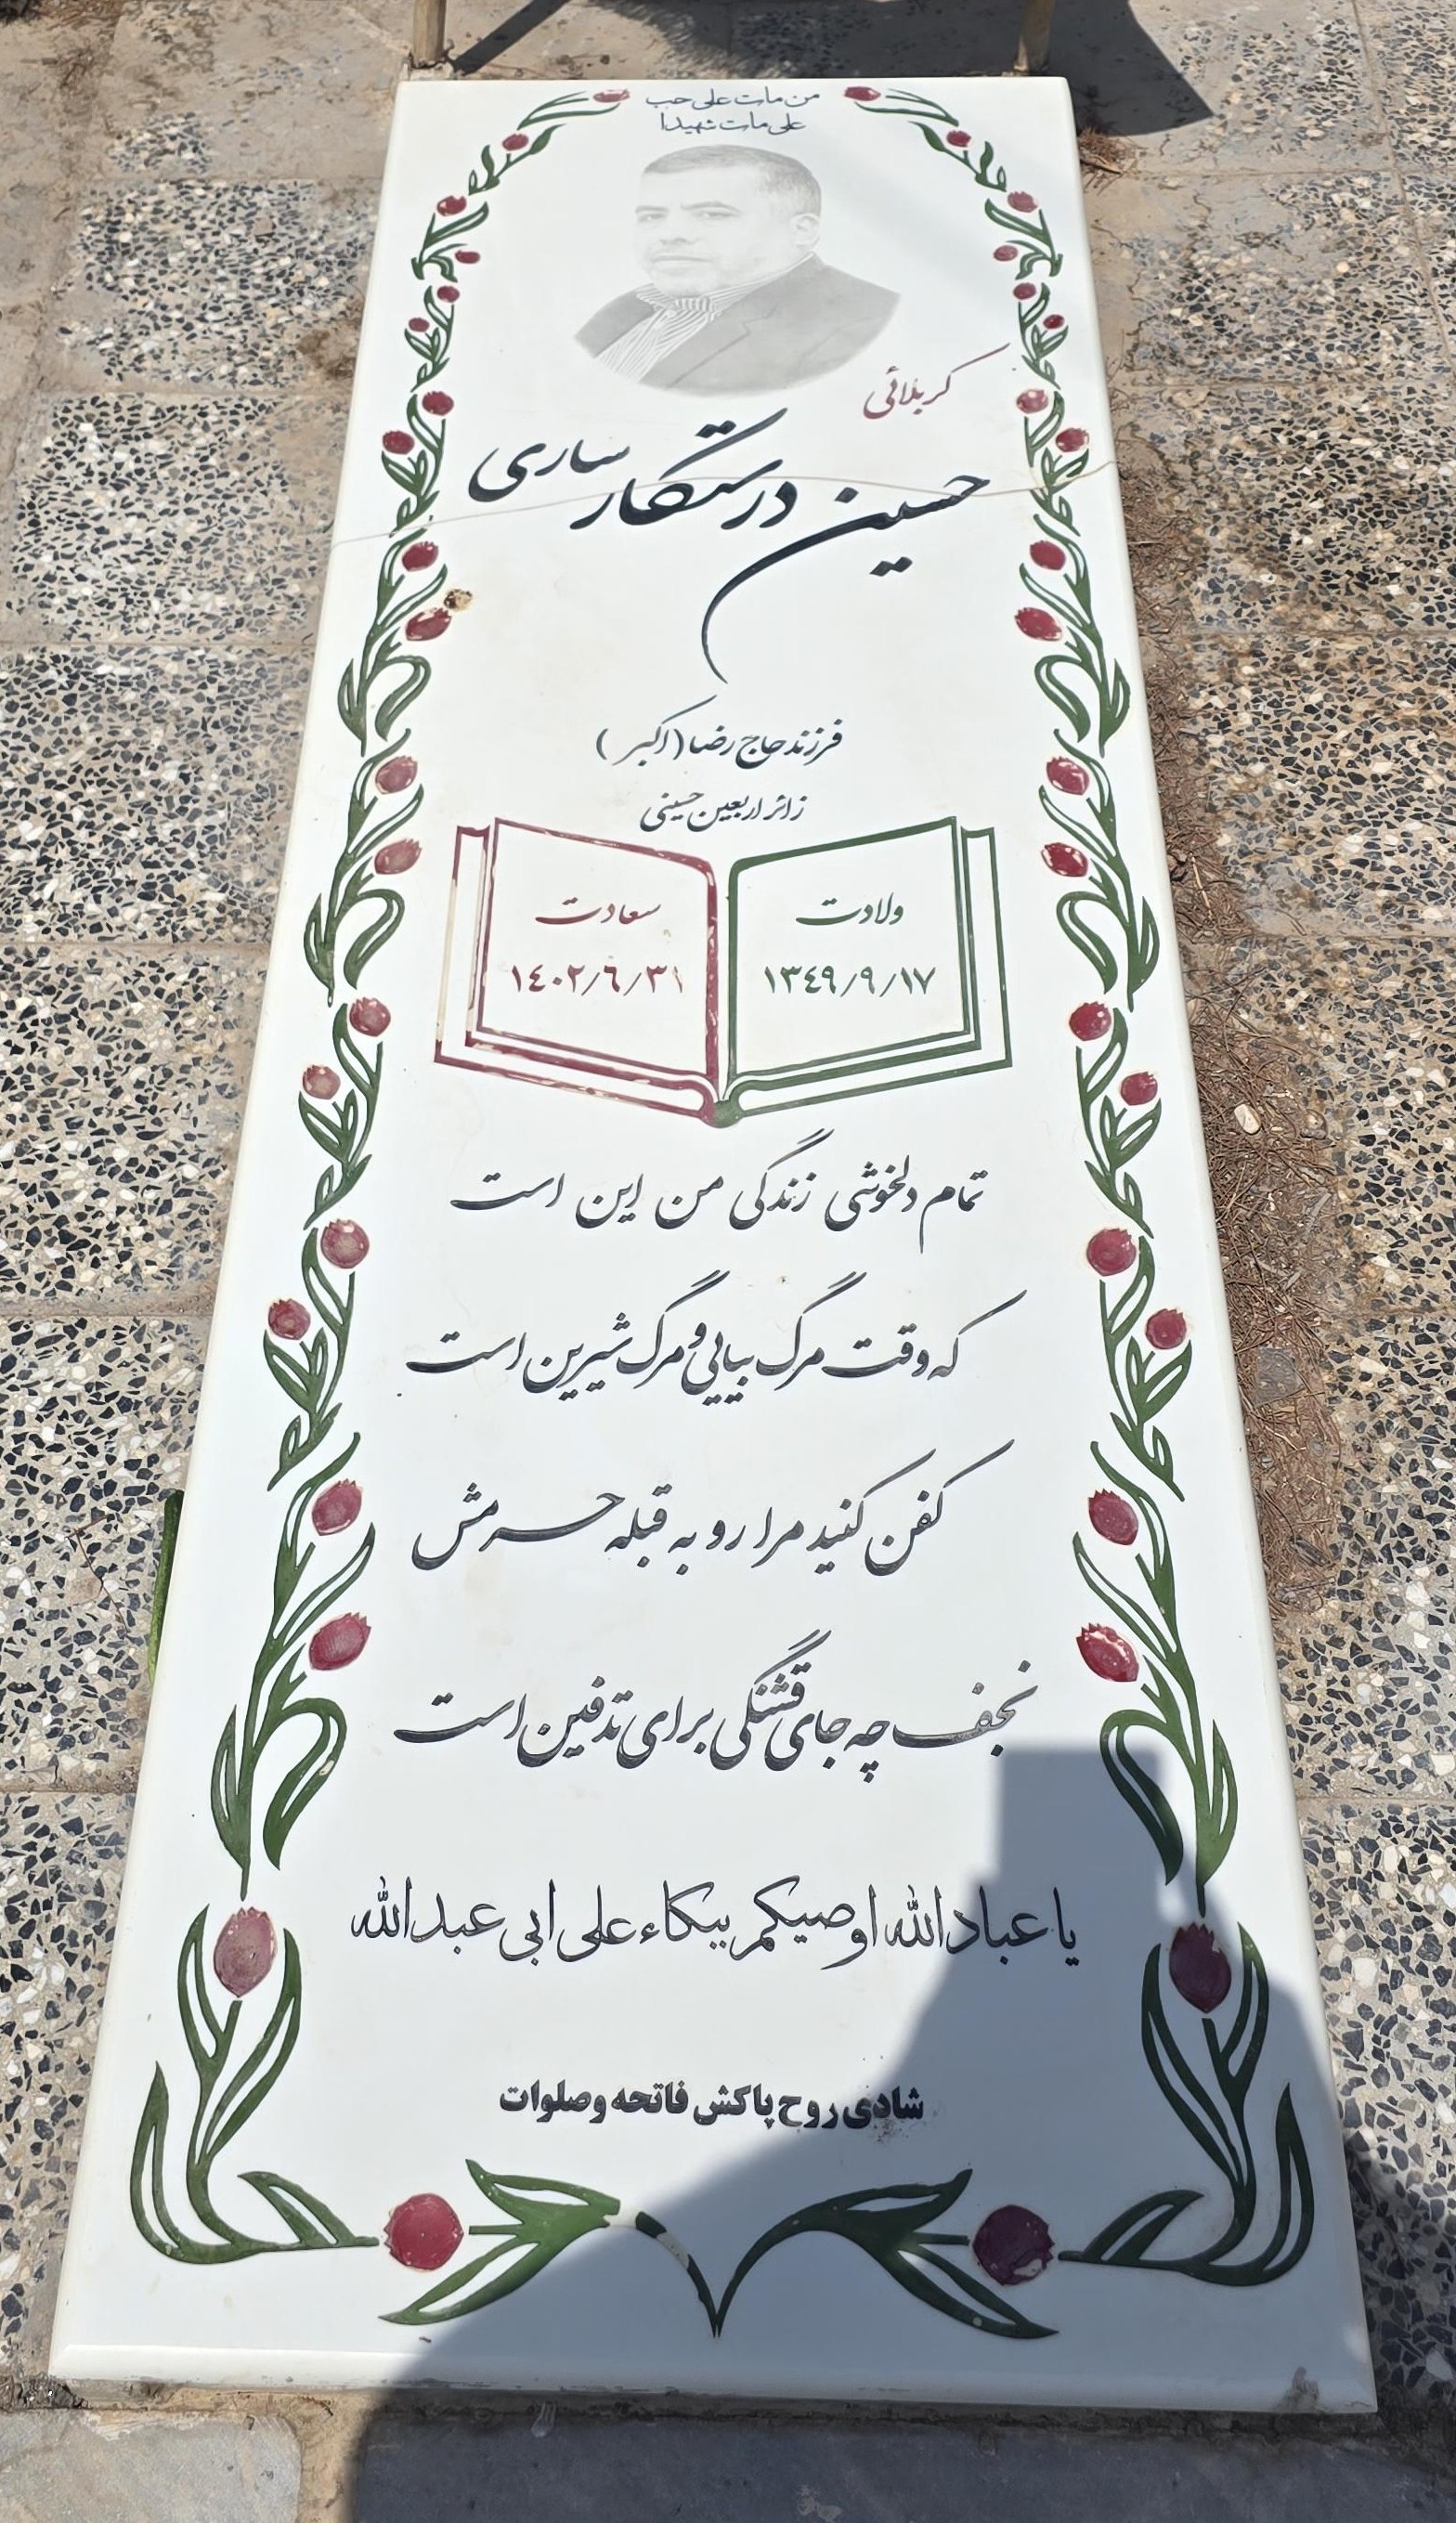 من مات علی حب
علی مات شهیدا
کربلائی
حسین درستکار ساری
فرزند حاج رضا (اکبر)
زائر اربعین حسینی
ولادت
۱۳٤۹/۹/۱۷
سعادت
۱٤۰۲/٦/۳۱
تمام دلخوشی زندگی من این است
که وقت مرگ بیایی و مرگ شیرین است
کفن کنید مرا رو به قبله حرمش
نجف چه جای قشنگی برای تدفین است
یا عباد الله اوصیکم ببکاء علی ابی عبدالله
شادی روح پاکش فاتحه و صلوات